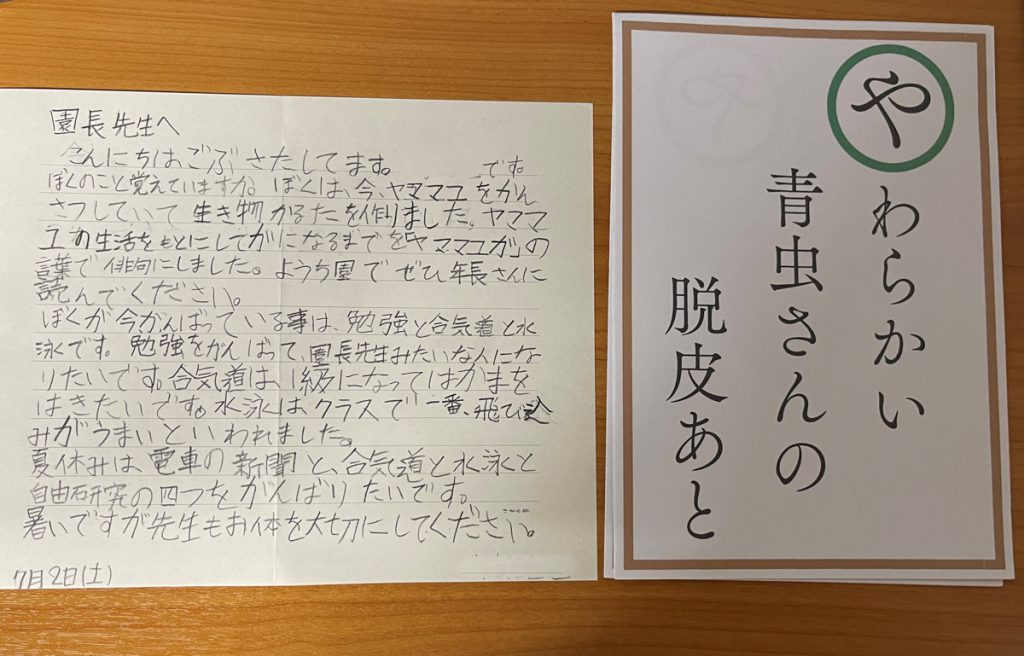 園長先生へ
こんにちは。ごぶさたしてます。 です。
ぼくのこと覚えていますか。ぼくは、今、ヤママユをかん
さつしていて生き物かるたを作りました。ヤママ
ユの生活をもとにしてガになるまでを「ヤママユガ」の
言葉で俳句にしました。ようち園でぜひ年長さんに
読んでください。
ぼくが今がんばっている事は、勉強と合気道と水
泳です。勉強をがんばって、園長先生みたいな人にな
りたいです。合気道は、1級になってはかまを
はきたいです。水泳はクラスで一番、飛び込
みがうまいといわれました。
夏休みは、電車の新聞と、合気道と水泳と
自由研究の四つをがんばりたいです。
暑いですが先生もお体を大切にしてください。
7月2日(土)
やわらかい
青虫さんの
脱皮あと